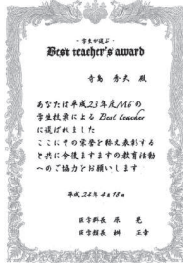 - 学生が選ぶ -
Best teacher's award
寺島 秀夫 殿
あなたは平成23年度M6の
学生投票による Best teacher
に選ばれました
ここにその栄誉を称え表彰する
と共に今後ますますの教育活動
へのご協力をお願いします
平成24年4月18日
医学科長 原 晃
医学類長 桝 正幸